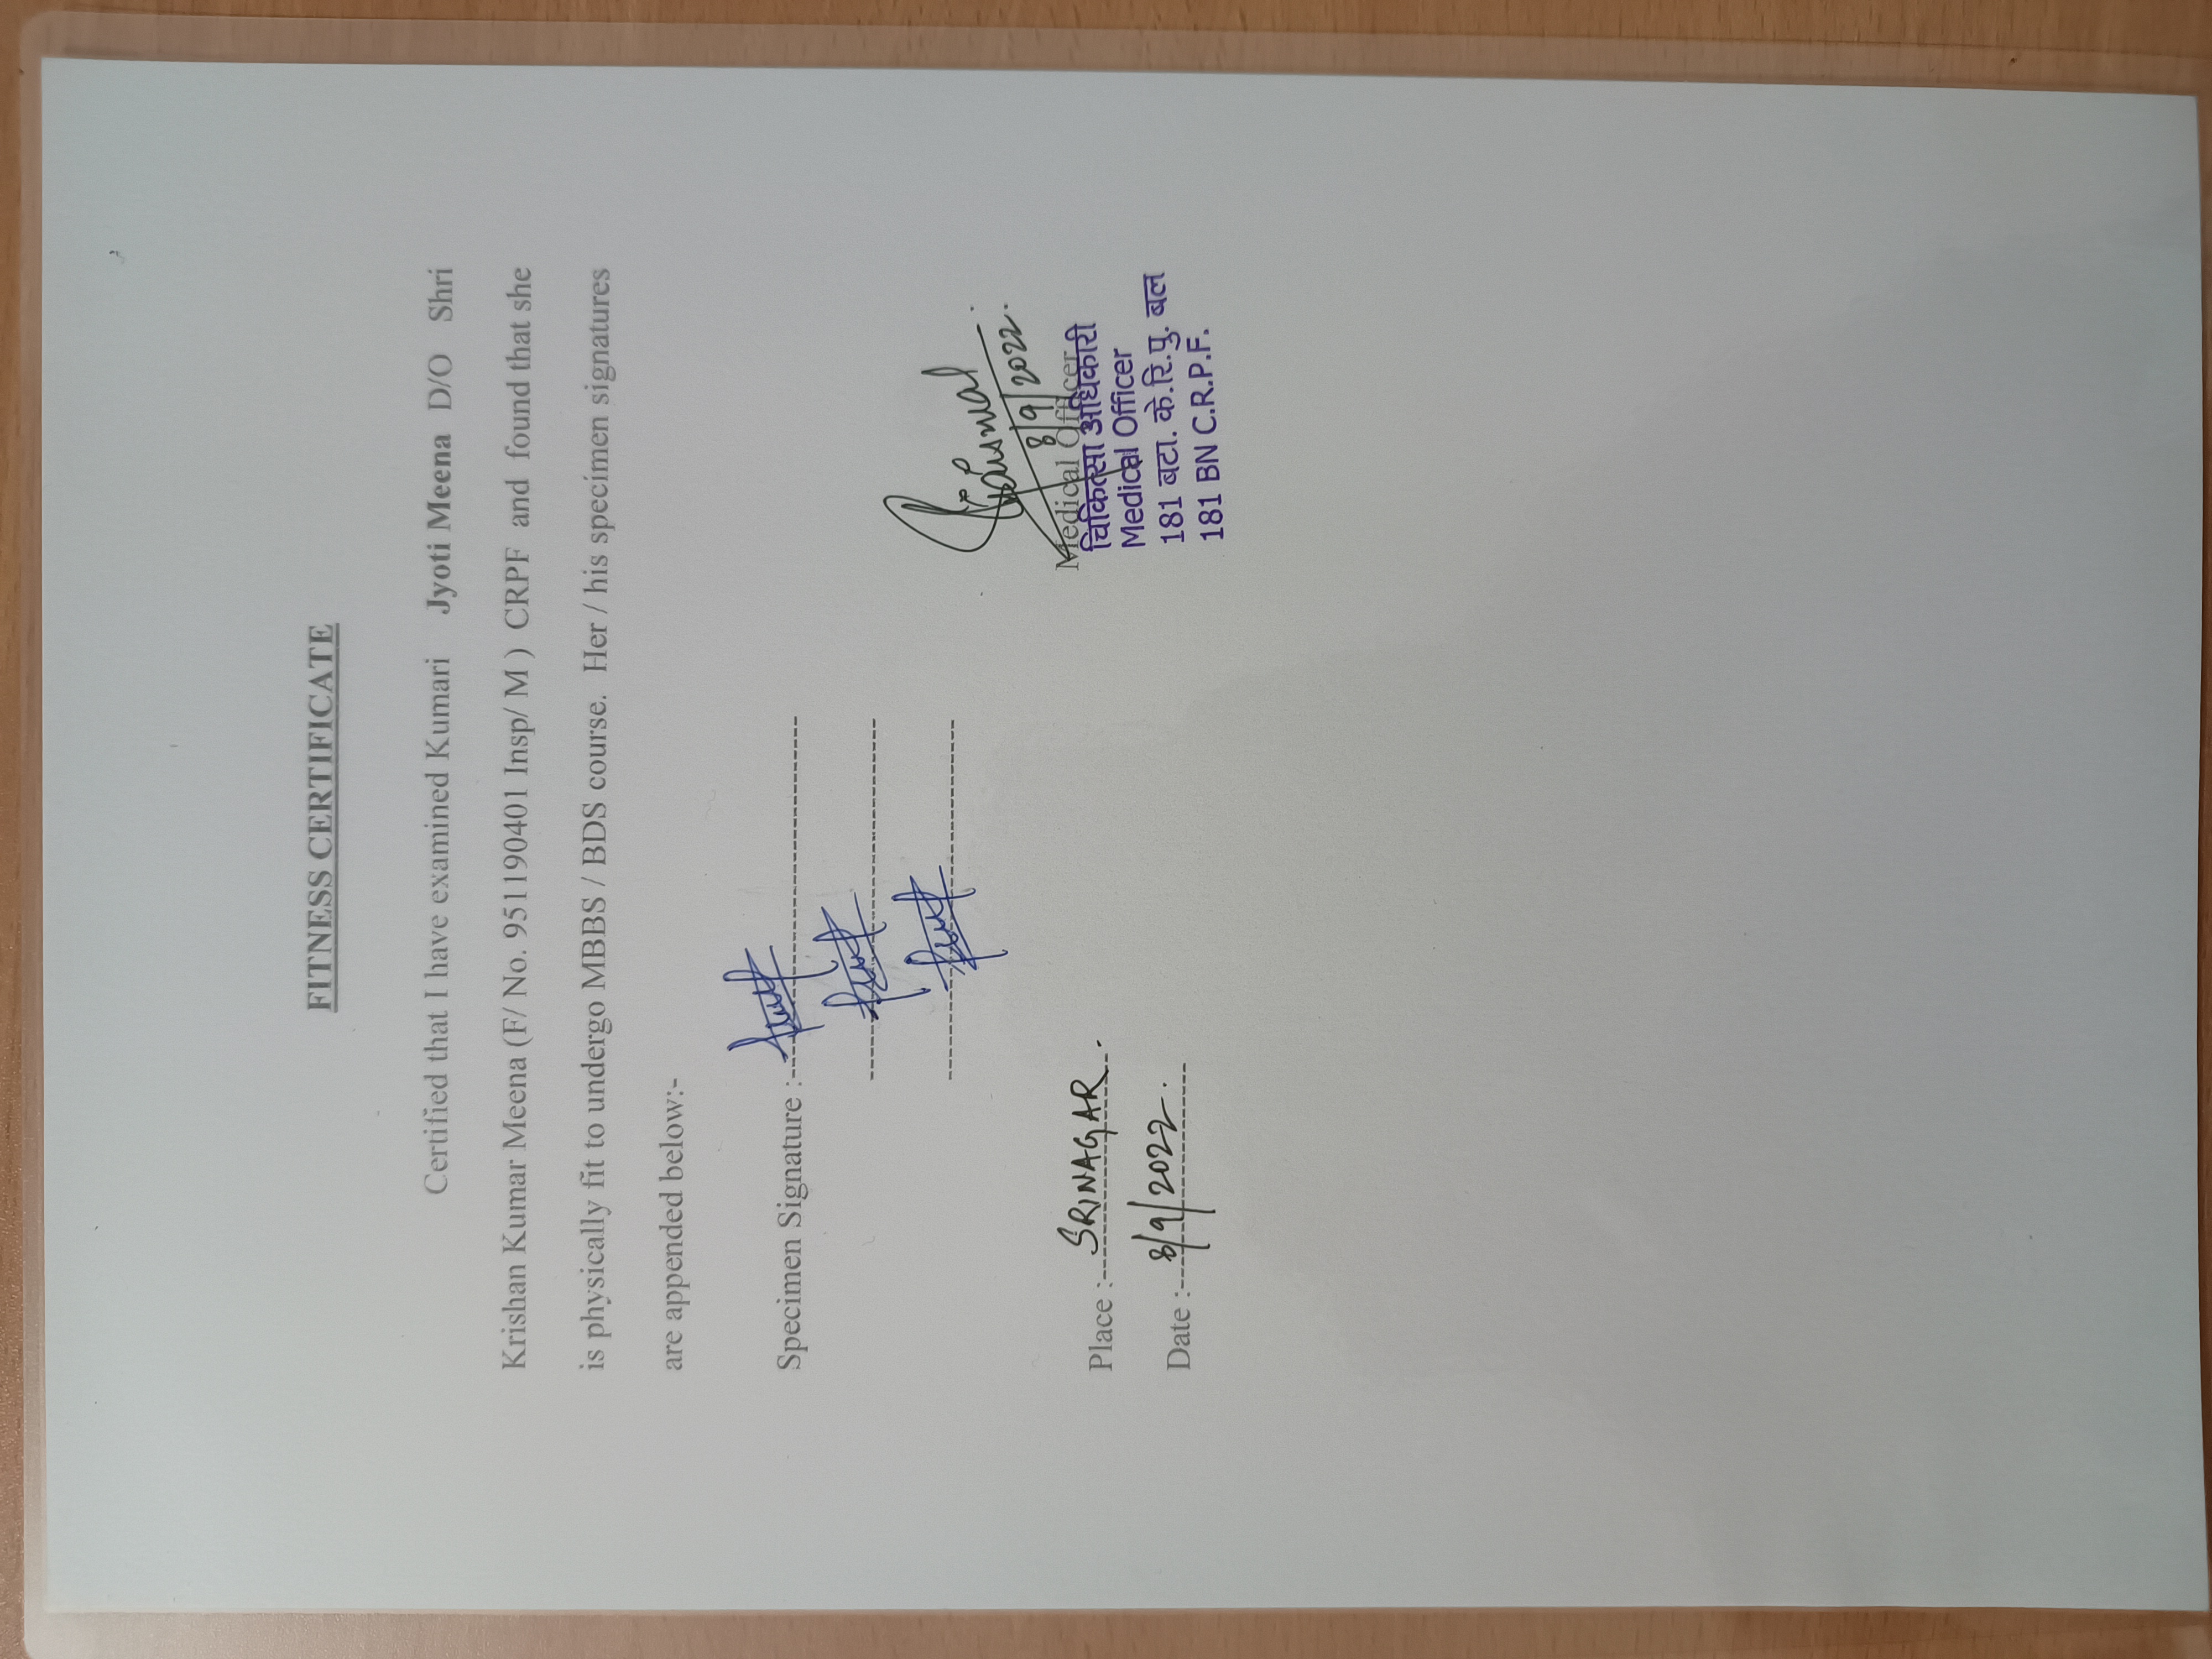 FITNESS CERTIFICATE
Certified that I have examined Kumari Jyoti Meena D/O Shri
Krishan Kumar Meena (F/ No. 951190401 Insp/ M ) CRPF and found that she
is physically fit to undergo MBBS / BDS course. Her / his specimen signatures
are appended below:-
Specimen Signature :-
8/9/2022.
Medical Officer
Place :- SRINAGAR.
Date :- 8/9/2022.
चिकित्सा अधिकारी
Medical Officer
181 बटा. के.रि.पु. बल
181 BN C.R.P.F.